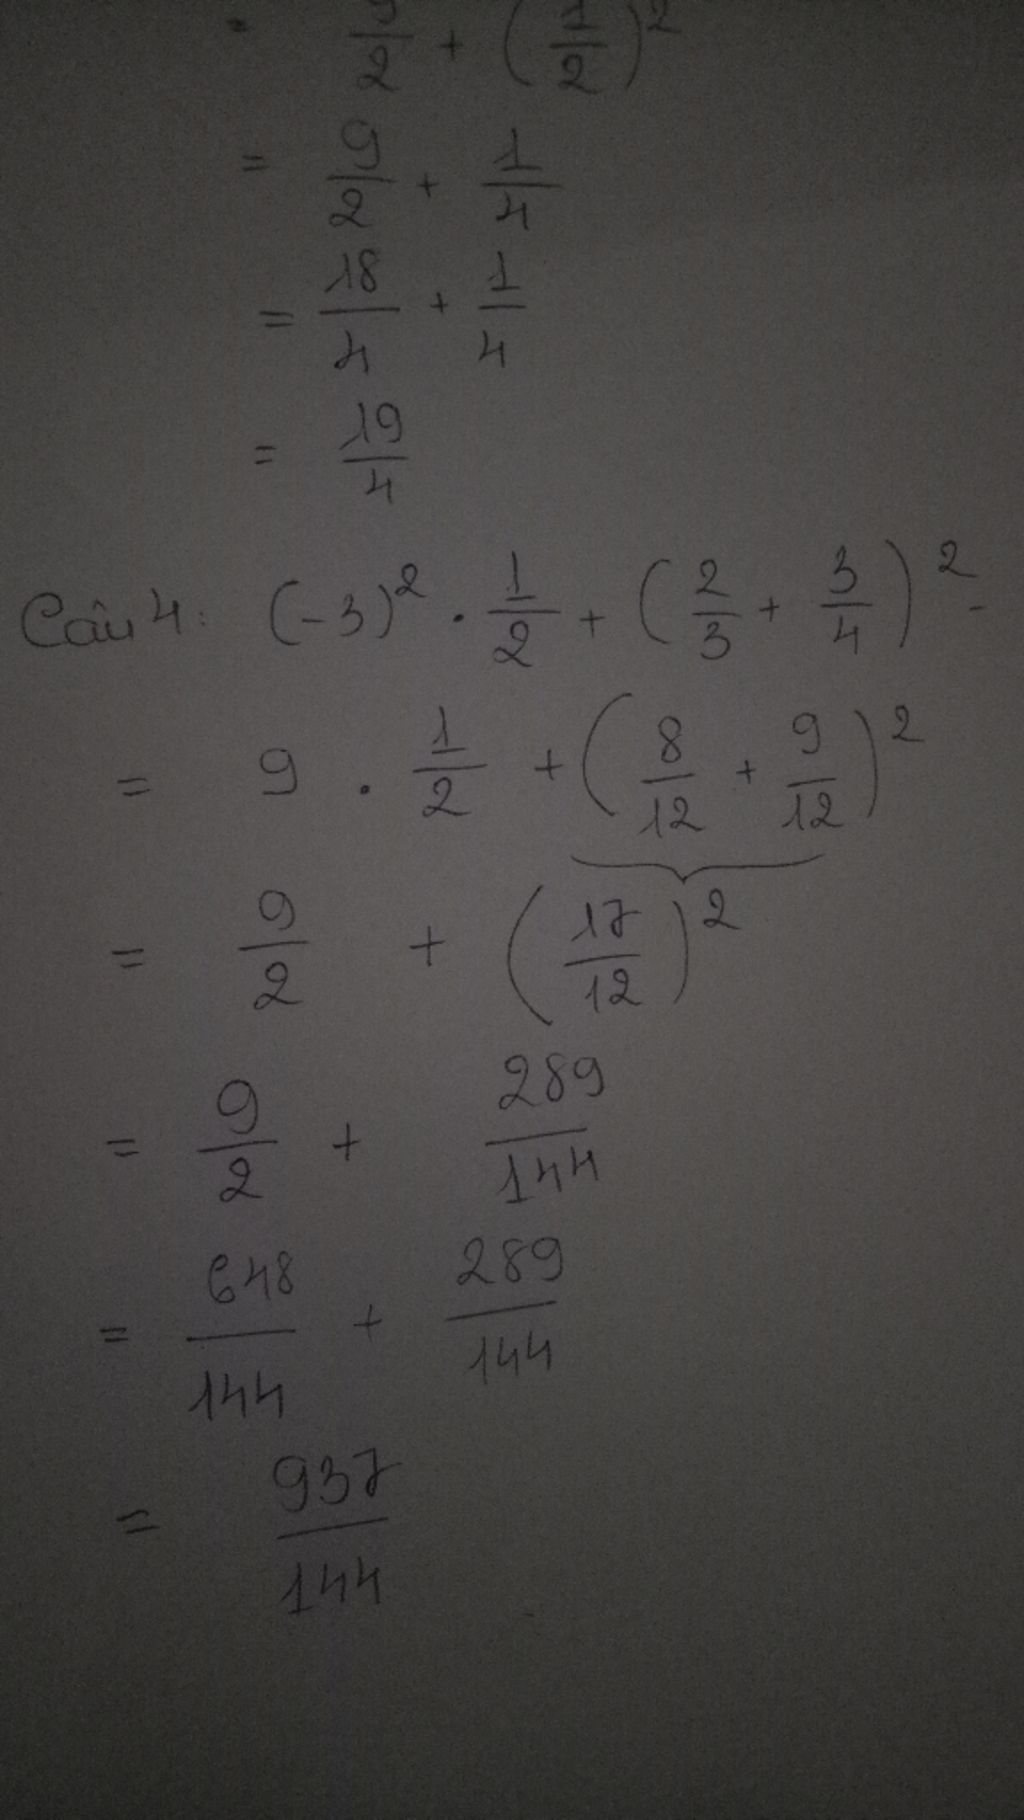 9/2 + (1/2)²
= 9/2 + 1/4
= 18/4 + 1/4
= 19/4
Câu 4: (-3)² . 1/2 + (2/3 + 3/4)² -
= 9 . 1/2 + (8/12 + 9/12)²
= 9/2 + (17/12)²
= 9/2 + 289/144
= 648/144 + 289/144
= 937/144